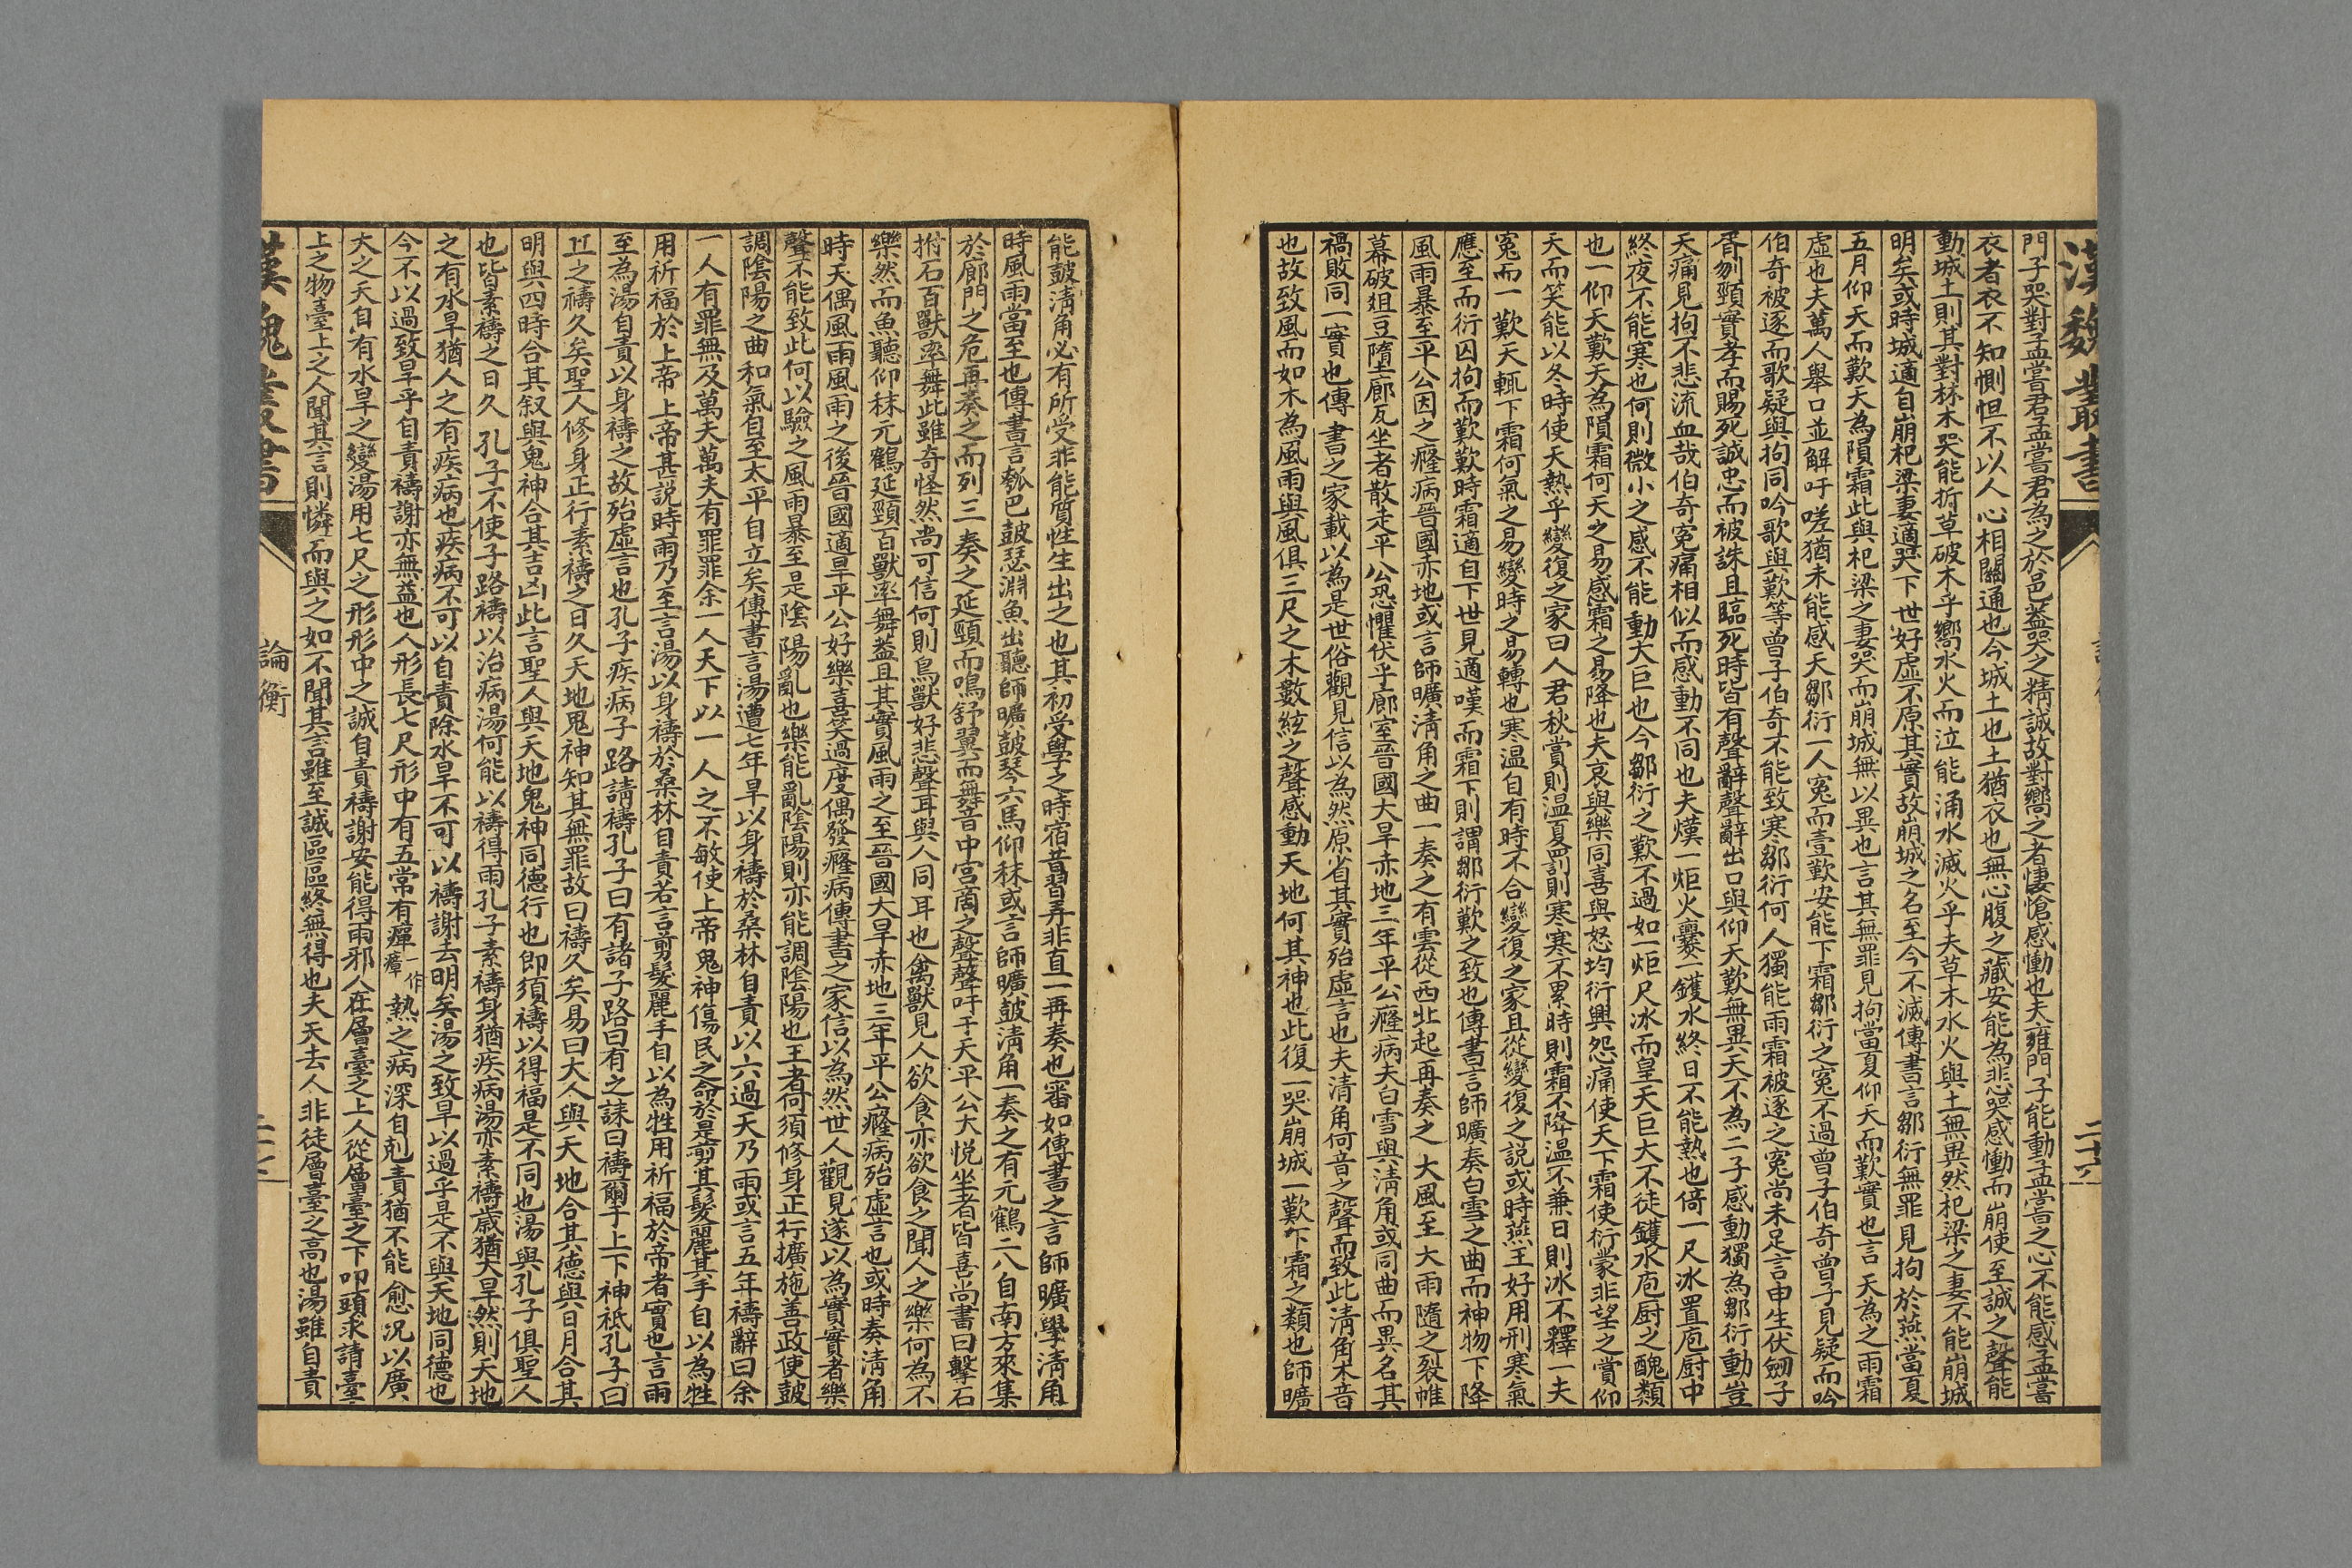 漢魏叢書
二十六
門子哭對孟嘗君孟嘗君為之於邑蓋哭之精誠故對嚮之者悽愴感慟也夫雍門子能動孟嘗之心不能感孟嘗
衣者衣不知惻怛不以人心相關通也今城土也土猶衣也無心腹之藏安能為悲哭感慟而崩使至誠之聲能
動城土則其對林木哭能折草破木乎嚮水火而泣能涌水滅火乎夫草木水火與土無異然杞梁之妻不能崩城
明矣或時城適自崩杞梁妻適哭下世好虛不原其實故崩城之名至今不滅傳書言鄒衍無罪見拘於燕當夏
五月仰天而歎天為隕霜此與杞梁之妻哭而崩城無以異也言其無罪見拘當夏仰天而歎實也言天為之雨霜
虛也夫萬人舉口並解吁嗟猶未能感天鄒衍一人冤而壹歎安能下霜鄒衍之冤不過曾子伯奇曾子見疑而吟
伯奇被逐而歌疑與拘同吟歌與歎等曾子伯奇不能致寒鄒衍何人獨能雨霜被逐之冤尚未足言申生伏劒子
胥刎頸實孝而賜死誠忠而被誅且臨死時皆有聲辭聲辭出口與仰天歎無異天不為二子感動獨為鄒衍動豈
天痛見拘不悲流血哉伯奇冤痛相似而感動不同也夫熯一炬火爨一鑊水終日不能熱也倚一尺冰置庖厨中
終夜不能寒也何則微小之感不能動大巨也今鄒衍之歎不過如一炬尺冰而皇天巨大不徒鑊水庖厨之醜類
也一仰天歎天為隕霜何天之易感霜之易降也夫哀與樂同喜與怒均衍興怨痛使天下霜使衍蒙非望之賞仰
天而笑能以冬時使天熱乎變復之家曰人君秋賞則温夏罰則寒寒不累時則霜不降温不兼日則冰不釋一夫
冤而一歎天輒下霜何氣之易變時之易轉也寒温自有時不合變復之家且從變復之説或時燕王好用刑寒氣
應至而衍囚拘而歎歎時霜適自下世見適嘆而霜下則謂鄒衍歎之致也傳書言師曠奏白雪之曲而神物下降
風雨暴至平公因之癃病晉國赤地或言師曠清角之曲一奏之有雲從西北起再奏之大風至大雨隨之裂帷
幕破俎豆墮廊瓦坐者散走平公恐懼伏乎廊室晉國大旱赤地三年平公癃病夫白雪與清角或同曲而異名其
禍敗同一實也傳書之家載以為是世俗觀見信以為然原省其實殆虛言也夫清角何音之聲而致此清角木音
也故致風而如木為風雨與風俱三尺之木數絃之聲感動天地何其神也此復一哭崩城一歎下霜之類也師曠
能鼓清角必有所受非能質性生出之也其初受學之時宿昔習弄非直一再奏也審如傳書之言師曠學清角
時風雨當至也傳書言瓠芭鼓瑟淵魚出聽師曠鼓琴六馬仰秣或言師曠鼓清角一奏之有元鶴二八自南方來集
於廊門之危再奏之而列三奏之延頸而鳴舒翼而舞音中宮商之聲聲吁于天平公大悦坐者皆喜尚書曰擊石
拊石百獸率舞此雖奇怪然尚可信何則鳥獸好悲聲耳與人同耳也禽獸見人欲食亦欲食之聞人之樂何為不
樂然而魚聽仰秣元鶴延頸百獸率舞蓋且其實風雨之至晉國大旱赤地三年平公癃病殆虛言也或時奏清角
時天偶風雨風雨之後晉國適旱平公好樂喜笑過度偶發癃病傳書之家信以為然世人觀見遂以為實實者樂
聲不能致此何以驗之風雨暴至是陰陽亂也樂能亂陰陽則亦能調陰陽也王者何須修身正行擴施善政使鼓
調陰陽之曲和氣自至太平自立矣傳書言湯遭七年旱以身禱於桑林自責以六過天乃雨或言五年禱辭曰余
一人有罪無及萬夫萬夫有罪罪余一人天下以一人之不敏使上帝鬼神傷民之命於是剪其髮麗其手自以為牲
用祈福於上帝上帝甚説時雨乃至言湯以身禱於桑林自責若言剪髮麗手自以為牲用祈福於帝者實也言雨
至為湯自責以身禱之故殆虛言也孔子疾病子路請禱孔子曰有諸子路曰有之誄曰禱爾于上下神祇孔子曰
丘之禱久矣聖人修身正行素禱之日久天地鬼神知其無罪故曰禱久矣易曰大人與天地合其德與日月合其
明與四時合其叙與鬼神合其吉凶此言聖人與天地鬼神同德行也即須禱以得福是不同也湯與孔子俱聖人
也皆素禱之日久孔子不使子路禱以治病湯何能以禱得雨孔子素禱身猶疾病湯亦素禱歲猶大旱然則天地
之有水旱猶人之有疾病也疾病不可以自責除水旱不可以禱謝去明矣湯之致旱以過乎是不與天地同德也
今不以過致旱乎自責禱謝亦無益也人形長七尺形中有五常有癉一作瘴熱之病深自剋責猶不能愈况以廣
大之天自有水旱之變湯用七尺之形形中之誠自責禱謝安能得雨邪人在層臺之上人從層臺之下叩頭求請臺
上之物臺上之人聞其言則憐而與之如不聞其言雖至誠區區終無得也夫天去人非徒層臺之高也湯雖自責
漢魏叢書
論衡
二十七